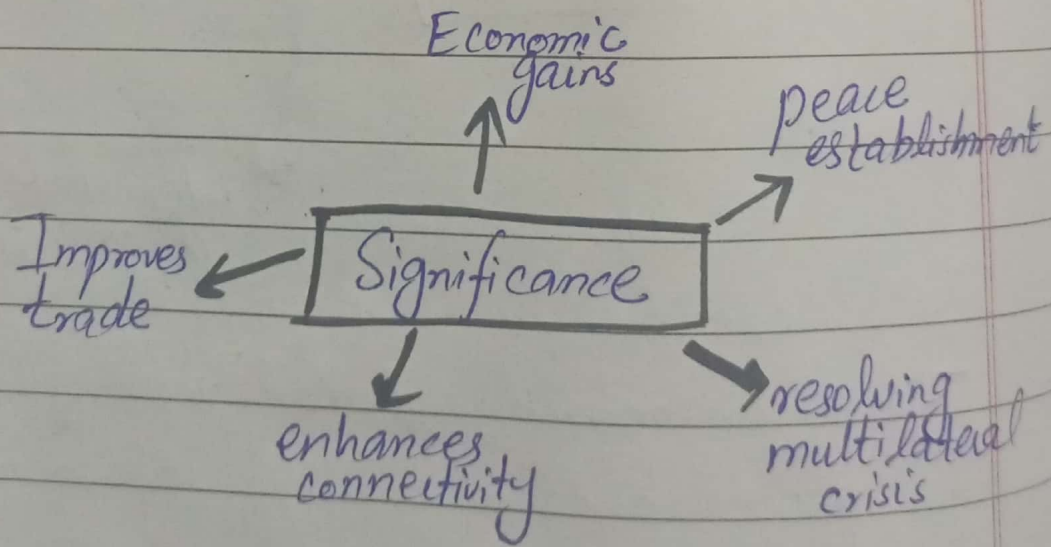 Economic
gains
peace
establishment
Improves
trade
Significance
enhances
connectivity
resolving
multilateral
crisis